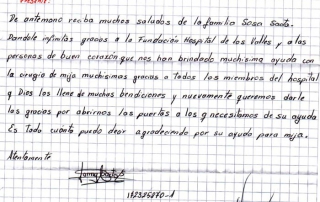 Presente.
De antemano reciba muchos saludos de la familia Sosa Santo.
Dandole infinitas gracias a la Fundación Hospital de los Valles, y a las
personas de buen corazón que nos han brindado muchisima ayuda con
la cirugia de mija muchisimas gracias a todos los miembros del hospital
q Dios los llene de muchas bendiciones y nuevamente queremos darle
las gracias por abrirnos las puertas a los q necesitamos de su ayuda
Es todo cuanto puedo desir agradeciendo por su ayuda para mija.
Atentamente